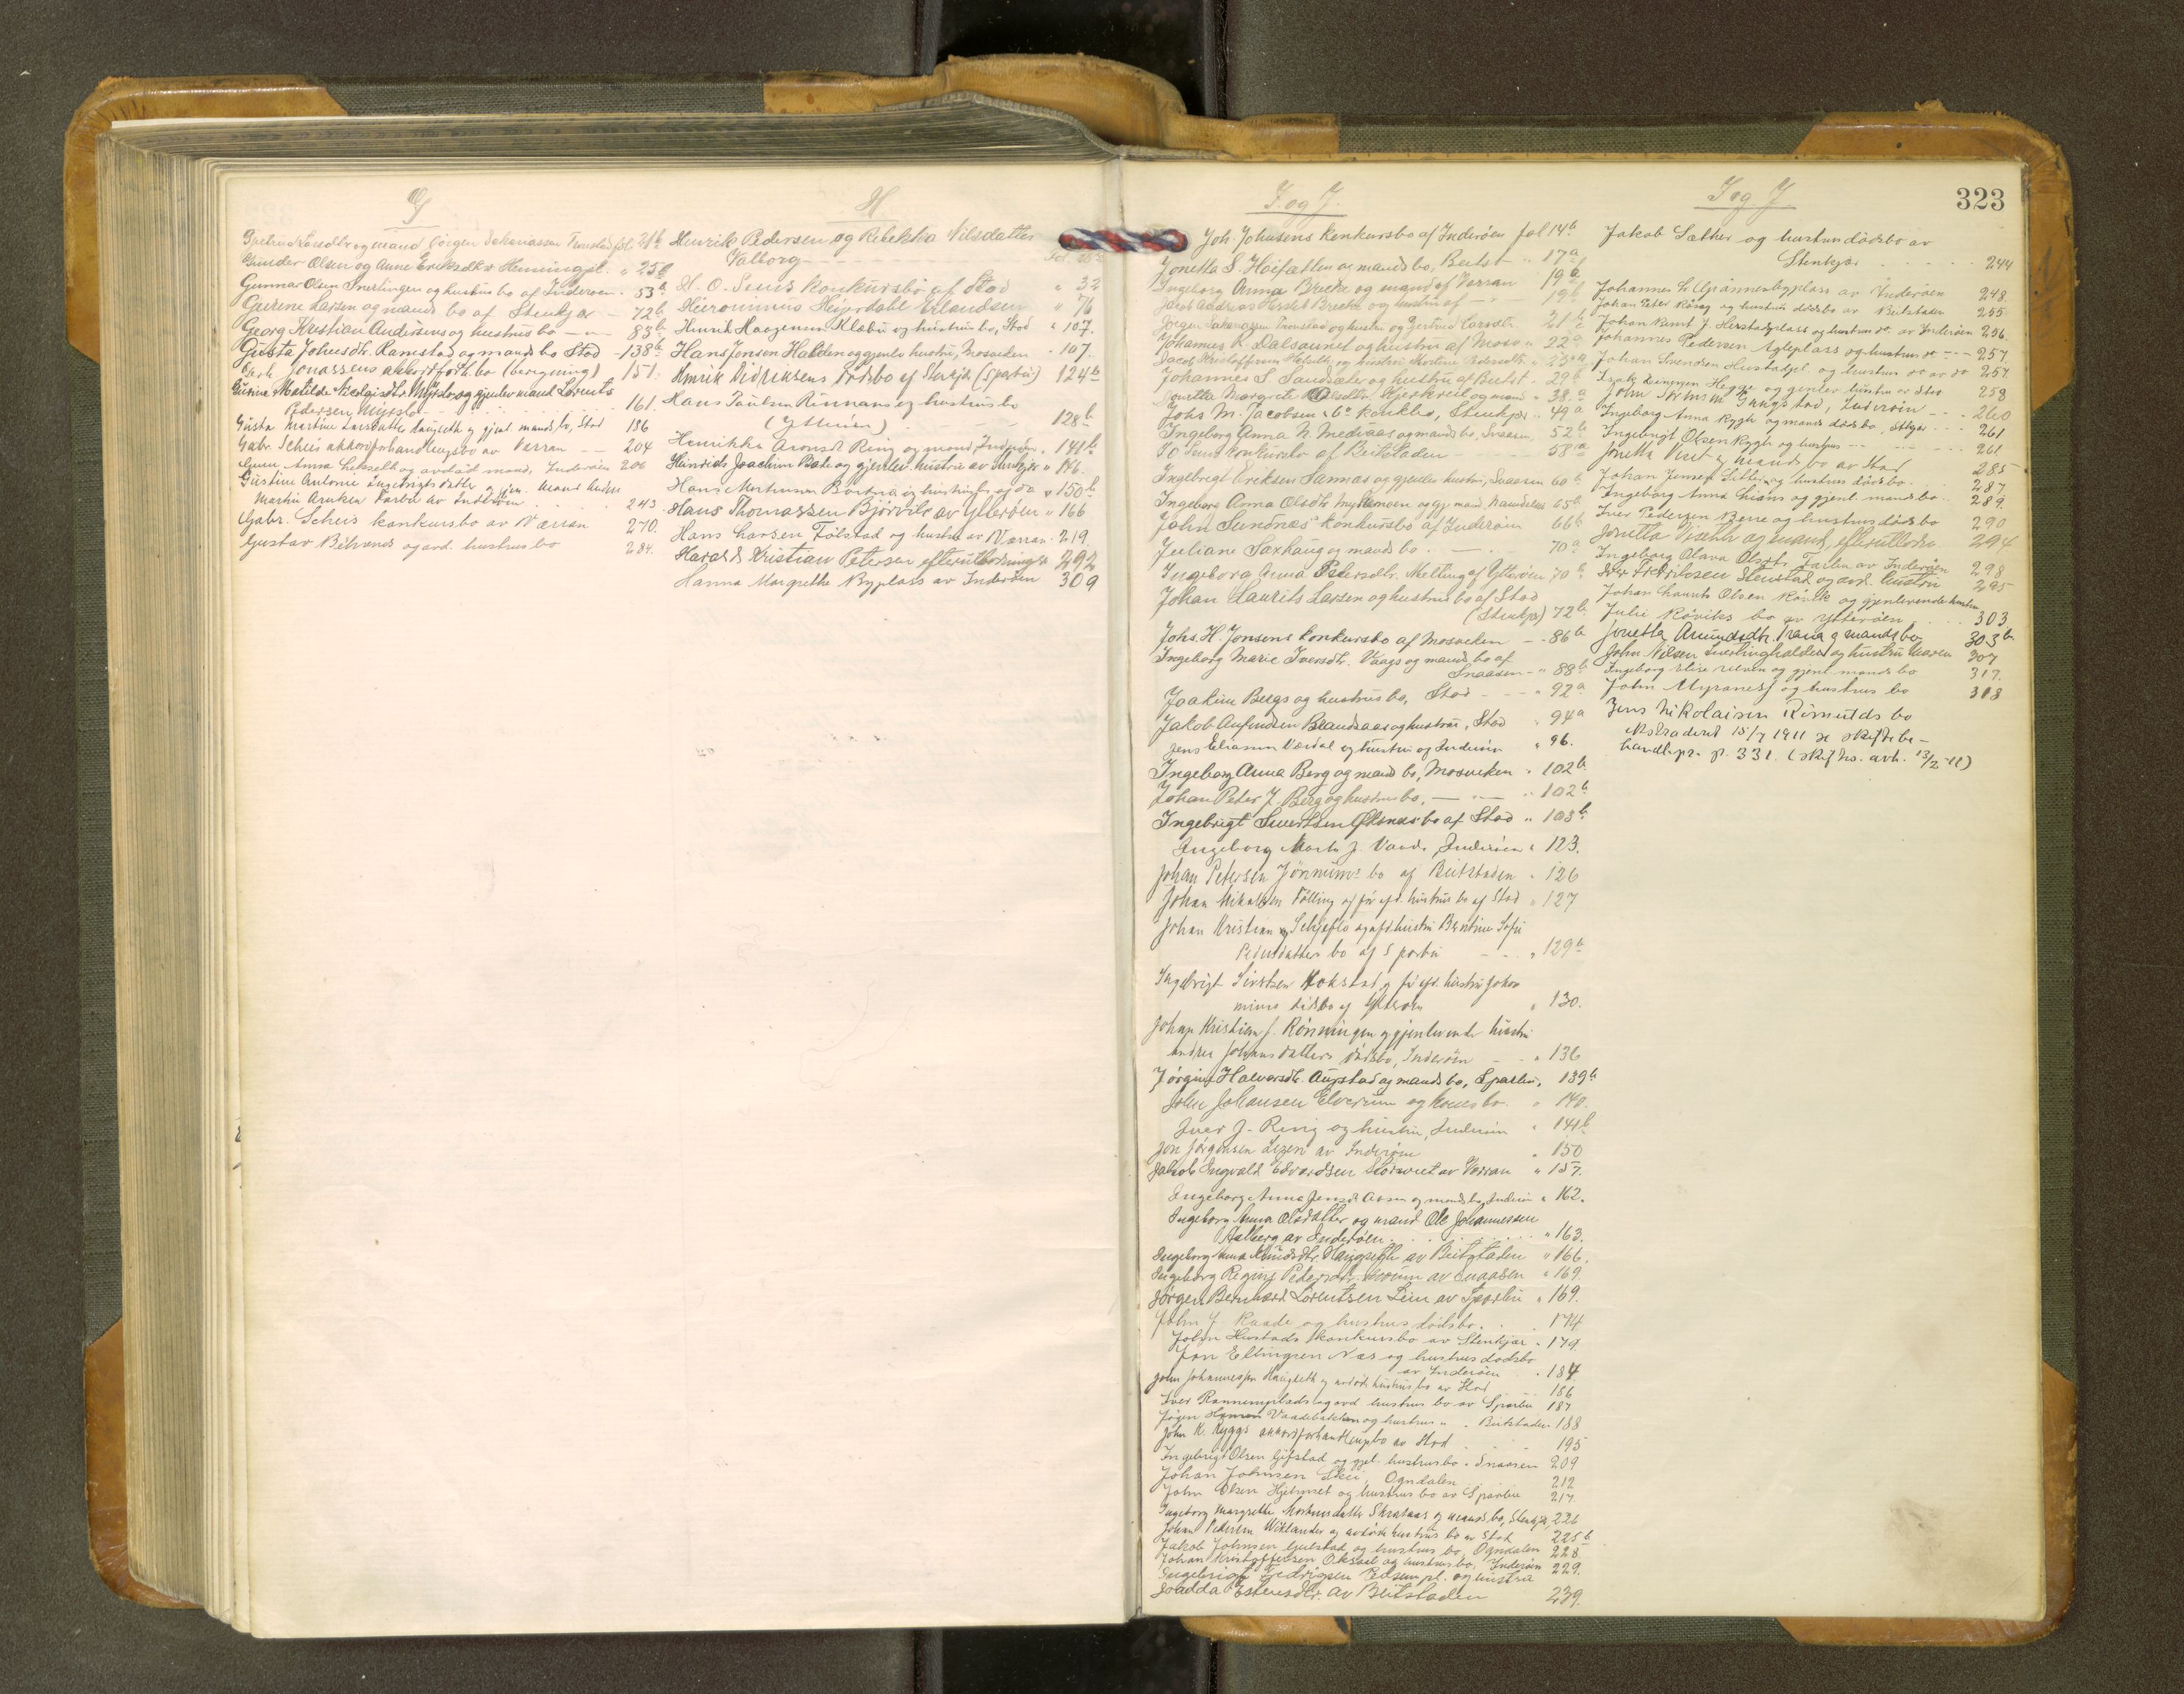 G
Gjertrud Larsdtr og mand Jørgen Zakariassen Tronstad fol. 21b
Gunder Olsen og Anne Eriksdtr Henningpl. " 25b
Gunnar Olsen Snertingen og hustrus bo af Inderøen " 53b
Gurine Larsen og mands bo af Stenkjær - 72b
Georg Kristian Andersens og hustrus bo - " - 85b
Gusta Johnsdtr. Ramstad og mands bo Stod - 138b
Jonassens akkordforh. bo (beregning) 151.
Gurine Matilde Myrslo og gjenlev mand Lorents
Pedersen Myrslo 161.
Gusta Martine Larsdatter Haugseth og gjenl. mands bo, Stod 186
Gabr. Scheis akkordforhandlingsbo av Værran -- 204
Gunn Anna Letnselb og avdød mand, Inderøen 206
Gustine Antonie Ingebrigtsdatter og gjen. mand Anders
Martin Aruksen Farbu av Inderøen 243
Gabr. Scheis konkursbo av Værran 270.
Gustav Behrends og avd. hustrus bo 284.
H
Henrik Pedersen og Rebekka Nilsdatter
Valborg
H. O. Sems konkursbo af Stod " 32
Hieronimus Heyerdahl Erlandsen " 76
Henrik Haagensen Klæbu og hustrus bo, Stod " 107.
Hans Jensen Halden og gjenlev hustru, Mosviken " 107.
Henrik Didriksens dødsbo af Stenkjær (Sparbu) 124b
Hans Paulsen Rennans og hustrus bo
(Ytterøen) 128b
Henrikka Aronsdt Ring og mand, Inderøen " 141b
Heinrich Joachim Bade og gjenlev. hustru av Stenkjær " 146.
Hans Mortensen og hustrus bo af do " 150b
Hans Thomassen Bjørvik av Ytterøen " 166
Hans Larsen Følstad og hustru av Værran 219.
Harald Kristian Petersen efterutlodning 292
Hanna Margrethe Byplass av Inderøen 309
323
I. og J.
Joh. Johnsens konkursbo af Inderøen fol 14b
Jonetta S. Høisætten og mands bo, Beitst - " 17a
Ingeborg Anna Brecke og mand af Værran 19b
Jakob Andreas Brecke og hustru af - " 19b
Jørgen Zakariassen Tronstad og hustru og Gjertrud Larsdt. 21b
Johannes K. Dalsaunet og hustru af Mosv " 22a
Jacob Kristoffersen og hustru Martine " 23a
Johannes S. Sandsæter og hustru af Beitst " 29b
Jonetta Margrete Olsdtr. Kjerkreit og mand " 38a
Johs M. Jacobsen & Co konkbo, Stenkjær " 49a
Ingeborg Anna N. Medjaas og mands bo, Snaasen, 52b
konkursbo af Beitstaden 58a
Ingebrigt Eriksen Sannas og gjenlev hustru, Snaasen 60b
Ingeborg Anna Olsdtr. og gj. mand Namdalen 65b
John Sundnæs' konkursbo af Inderøen 66b
Juliane Saxhaug og mands bo. - " - 70a
Ingeborg Anna Petersdtr. Melling af Ytterøen 70b
Johan Laurits Larsen og hustrus bo af Stod
(Stenkjær) 72b
Johs. H. Jonsens konkursbo af Mosviken - " 86b
Ingeborg Marie Iversdtr. Vaags og mands bo af
Snaasen - " 88b
Joakim Bergs og hustrus bo, Stod - - - " 92a
Jakob Anfindsen Brandsaas og hustru, Stod " 94a
Jens Eliassen Værdal og hustru af Inderøen " 96.
Ingeborg Anna Berg og mand bo, Mosviken " 102b
Johan Peter J. Berg og hustrus bo, - " - " 102b
Ingebrigt Sivertsen Øksnæs bo af Stod " 103b
Ingeborg Marta J. Vand, Inderøen " 123.
Johan Petersen Jørnums bo af Beitstaden " 126
Johan Mikalsen Følling og før afd. hustrus bo af Stod " 127
Johan Kristian Schjeflo og afd. hustru Berntine Sofie
Pedersdatters bo af Sparbu - - " 129b
Ingebrigt Sivertsen Hokstad og før afd. hustru Johan
mines dødsbo af Ytterøen " 130.
Johan Kristian J. Rønningen og gjenlevende hustru
Andrea Johansdatters dødsbo, Inderøen - - " 136
Jørgine Halvorsdtr. Aupstad og mands bo, Sparbu, 139b
John Johansen Elverum og kones bo. " 140.
Iver J. Ring og hustru, Inderøen " 141b
Jon Jørgensen av Inderøen " 150
Jakob Ingvald Edvardsen Storvret av Værran " 157.
Ingeborg Anna Jensdt. Aasen og mands bo, Inderøen " 162.
Ingeborg Anna Olsdatter og mand Ole Johannessen
Aalberg av Inderøen " 163.
Ingeborg Anna Haugseth av Beitstaden " 166.
Ingeborg Regine Pedersdtr. Moum av Snaasen " 169.
Jørgen Bernhard Lorentsen Lein av Sparbu " 169.
John J. Raade og hustrus dødsbo. 174
John Hustads konkursbo av Stenkjær " 179
Jon Ellingsen Næs og hustrus dødsbo
av Inderøen " 184.
John Johannessen Haugseth og avdøde hustrus bo av Stod 186
Iver Rannemplads og avd. hustrus bo av Sparbu 187
Jørgen Vaadebakken og hustrus " " Beitstaden 188
John K. Ryggs akkordforhandlingsbo av Stod 195
Ingebrigt Olsen Gifstad og gjel. hustrus bo " Snaasen 209
Johan Johnsen Skei, Ogndalen 212
John Olsen Hjelmset og hustrus bo av Sparbu 217
Ingeborg Margrethe Mortensdatter Skrataas og mands bo, Stenkjær, 226
Johan Petersen Wiklander og avdøde hustrus bo av Stod 225b
Jakob Johnsen Gulstad og hustrus bo, Ogndalen 228
Johan Kristoffersen Oksaal og hustrus bo, Inderøen 229.
Ingebrigt Fredriksen Edsem pl. og hustru
Joadda Estensdtr. av Beitstaden 239.
I og J.
Jakob Sæther og hustrus dødsbo av
Stenkjær 244
Johannes L. Grannesbyplass av Inderøen 248.
Johan Peter Kvag og hustrus dødsbo av Beitstaden 255
Johan Bernt J. Herstadplass og hustrus do. av Inderøen 256.
Johannes Pedersen Agleplass og hustrus do - - - 257
Johan Svendsen Hustadpl. og hustrus do av do 257.
Isak Henningsen Hegge og genlev hustru av Stod 259
John Gangstad, Inderøen - - 260
Ingeborg Anna Rygh og mands dødsbo, Stkjær - - - 261
Ingebrigt Olsen Rygh og hustrus -- -- 261
Jonetta Vist og mands bo av Stod 285
Johan Jensen og hustrus dødsbo 287.
Ingeborg Anna Lians og gjenl. mands bo 289.
Iver Pedersen Berre og hustrus dødsbo 290
Jonetta Viseth og mand, efterutlodn 294
Ingeborg Olava Olsdtr. Farbu av Inderøen 298
Fredriksen Stenstad og avd. hustru 295
Johan Laurits Olsen Røvik og gjenlevende hustru
Julie Røviks bo av Ytterøen 303
Jonetta Amundsdtr. Trana og mands bo 303b
John Nilsen Snertinghalden og hustru Maren 307
Ingeborg Elise og gjenl. mands bo 317.
John Myrones og hustrus bo 318
Jens Nikolaisen Rømulds bo
ekstraderet 15/7 1911 se skiftebe-
handl.pr. p. 331. (skiftes. avh. 13/2-11)